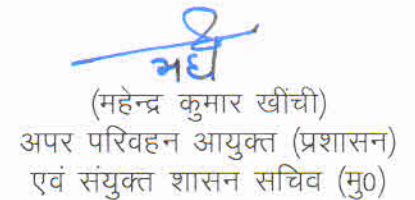 (महेन्द्र कुमार खींची)
अपर परिवहन आयुक्त (प्रशासन)
एवं संयुक्त शासन सचिव (मु0)